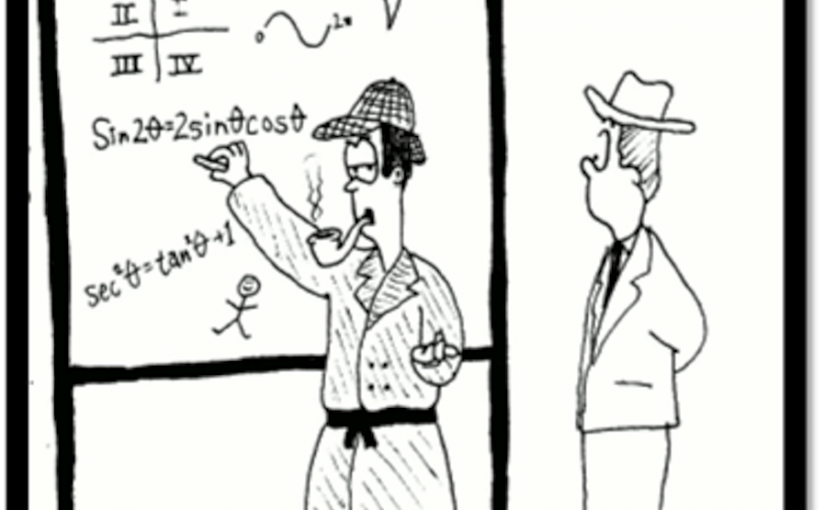 II I
0 2π
III IV
Sin2θ=2sinθcosθ
sec²θ=tan²θ+1